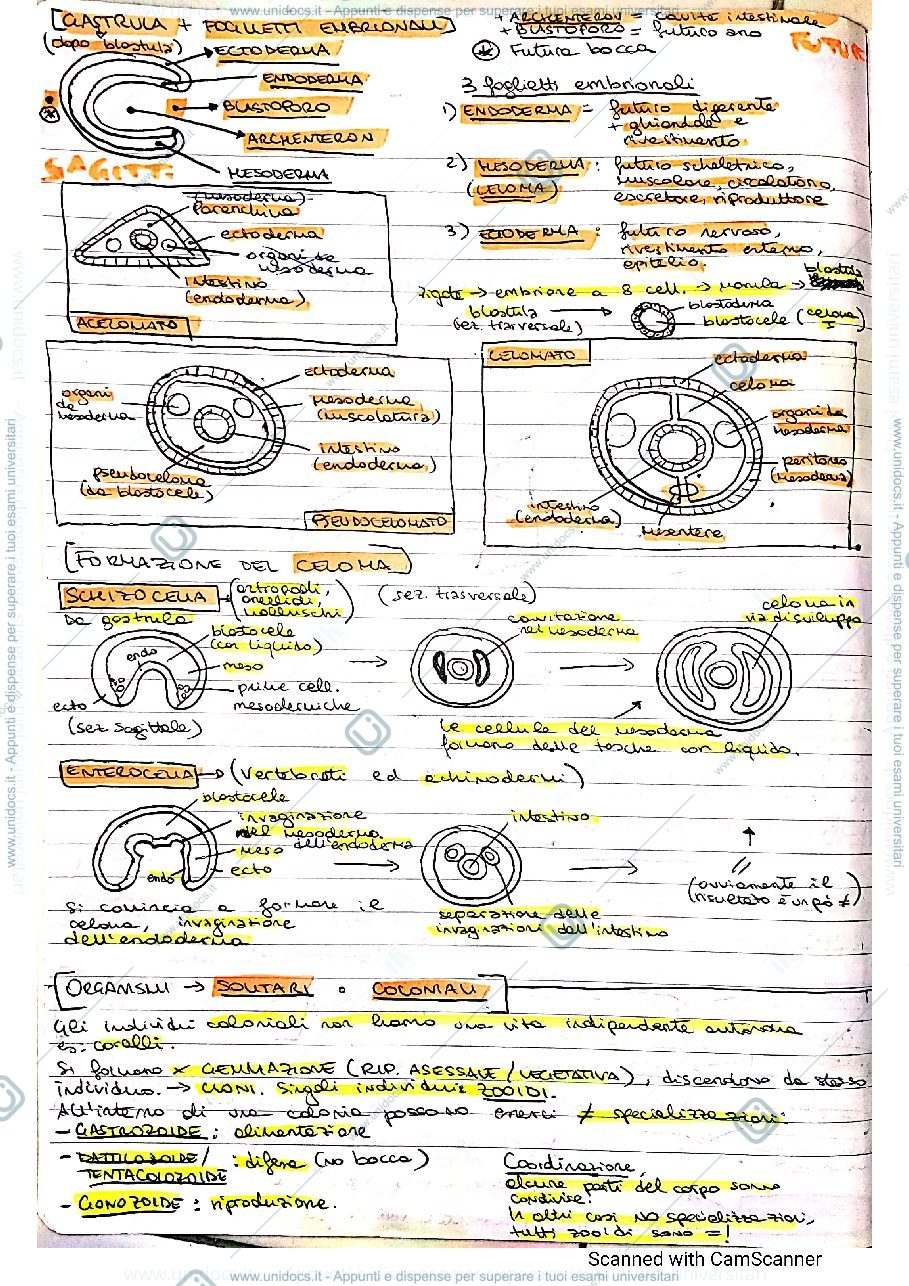 www.unidocs.it - Appunti e dispense per superare i tuoi esami universitari
[GASTRULA + FOGLIETTI EMBRIONALI]
(dopo blastula)
ECTODERMA
ENDODERMA
BLASTOPORO
ARCHENTERON
MESODERMA
SAGITT.
+ ARCHENTERON = cavità intestinale
+ BLASTOPORO = futuro ano
* Futura bocca
FUTUR
3 foglietti embrionali
1) ENDODERMA = futuro digerente
+ ghiandole e
rivestimento.
2) MESODERMA : futuro scheletrico,
(CELOMA) muscolare, circolatorio,
escretore, riproduttore
3) ECTODERMA : futuro nervoso,
rivestimento esterno,
epitelio.
zigote → embrione a 8 cell. → morula → blastula
blastula
(sez. trasversale)
blastoderma
blastocele (celoma I
(mesoderma)
parenchima
ectoderma
organi da
mesoderma
intestino
(endoderma)
ACELOMATO
ectoderma
organi
da
mesoderma
mesoderma
(muscolatura)
intestino
(endoderma)
pseudoceloma
(da blastocele)
PSEUDOCELOMATO
CELOMATO
ectoderma
celoma
organi da
mesoderma
peritoneo
(mesoderma)
intestino
(endoderma)
mesentere
[FORMAZIONE DEL CELOMA]
SCHIZOCELIA → (artropodi,
anellidi,
molluschi)
(sez. trasversale)
Da gastrula
blastocele
(con liquido)
endo
meso
prime cell.
mesodermiche
ecto
(sez. sagittale)
cavitazione
nel mesoderma
celoma in
via di sviluppo
le cellule del mesoderma
formano delle tasche con liquido.
ENTEROCELIA → (vertebrati ed echinodermi)
blastocele
invaginazione
del mesoderma
dell'endoderma
meso
endo
ecto
intestino
Si comincia a formare il
celoma, invaginazione
dell'endoderma
separazione delle
invaginazioni dall'intestino
(ovviamente il
risultato è un pò ≠)
[ORGANISMI → SOLITARI o COLONIALI]
Gli individui coloniali non hanno una vita indipendente autonoma
es: coralli.
Si formano x GEMMAZIONE (RIP. ASESSALE / VEGETATIVA), discendono da stesso
individuo. → CLONI. Singoli individui: ZOOIDI.
All'interno di una colonia possono esserci ≠ specializzazioni:
- GASTROZOIDE : alimentazione
- DATTILOZOIDE /
TENTACOLOZOIDE : difesa (no bocca)
- GONOZOIDE : riproduzione.
Coordinazione,
alcune parti del corpo sono
condivise.
In altri casi NO specializzazioni,
tutti zooidi sono =!
Scanned with CamScanner
www.unidocs.it - Appunti e dispense per superare i tuoi esami universitari